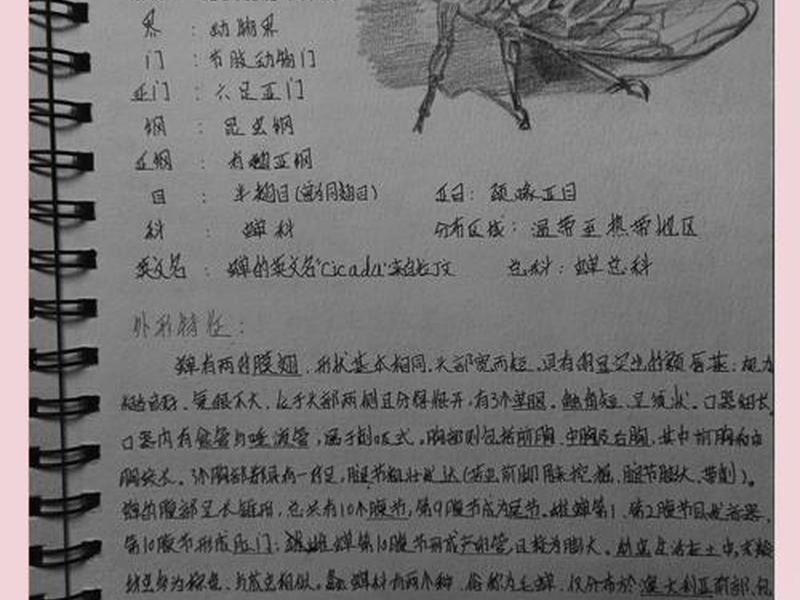 界 : 动物界
门 : 节肢动物门
亚门 : 六足亚门
纲 : 昆虫纲
亚纲 : 有翅亚纲
目 : 半翅目(旧为同翅目) 亚目: 颈喙亚目
科 : 蝉科 分布区域: 温带至热带地区
英文名 : 蝉的英文名"Cicada"来自拉丁文 总科: 蝉总科
外形特征:
蝉有两对膜翅,形状基本相同,头部宽而短,具有明显突出的额唇基;视力
相当好,复眼不大,位于头部两侧且分得很开,有3个单眼。触角短,呈须状。口器细长,
口器内有食管与唾液管,属于刺吸式。胸部则包括前胸、中胸及后胸,其中前胸和中
胸较长。3个胸部都具有一对足,腿节粗壮发达(若虫前脚用来挖掘,腿节膨大,带刺)。
蝉的腹部呈长锥形,总共有10个腹节,第9腹节成为尾节。雄蝉第1、第2腹节具发音器,
第10腹节形成肛门;雌蝉第10腹节形成产卵管,且较为膨大。幼虫生活在土中,末龄
幼虫多为棕色,与成虫相似。蝉科有两个种,俗称为毛蝉,仅分布於澳大利亚南部,包